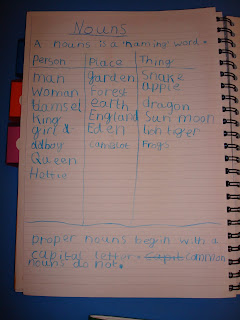 Nouns
A nouns is a naming word.
Person Place Thing
man garden Snake
Woman Forest apple
damsel earth dragon
King England Sun moon
girl & Eden lion tiger
oldboy camelot Frogs
Queen
Hattie
proper nouns begin with a
capital letter. Capit common
nouns do not.